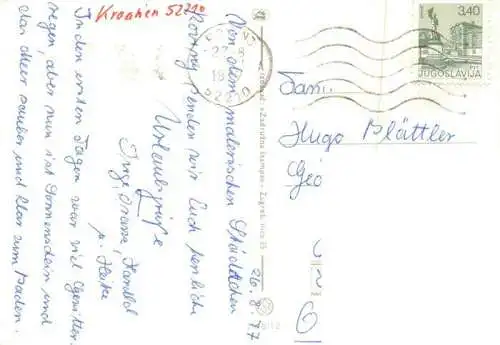 Kroatien 52210
26.8.77
Von dem malerischen Städtchen
Rovinj senden wir Euch herzliche
Urlaubsgrüße
Inge,
u. Heike
In den ersten Tagen war viel Gewitter-
regen, aber nun ist Sonnenschein und
das Meer sauber und klar zum Baden.
Fam.
Hugo Blättler
3,40
JUGOSLAVIJA
52210
Zagreb